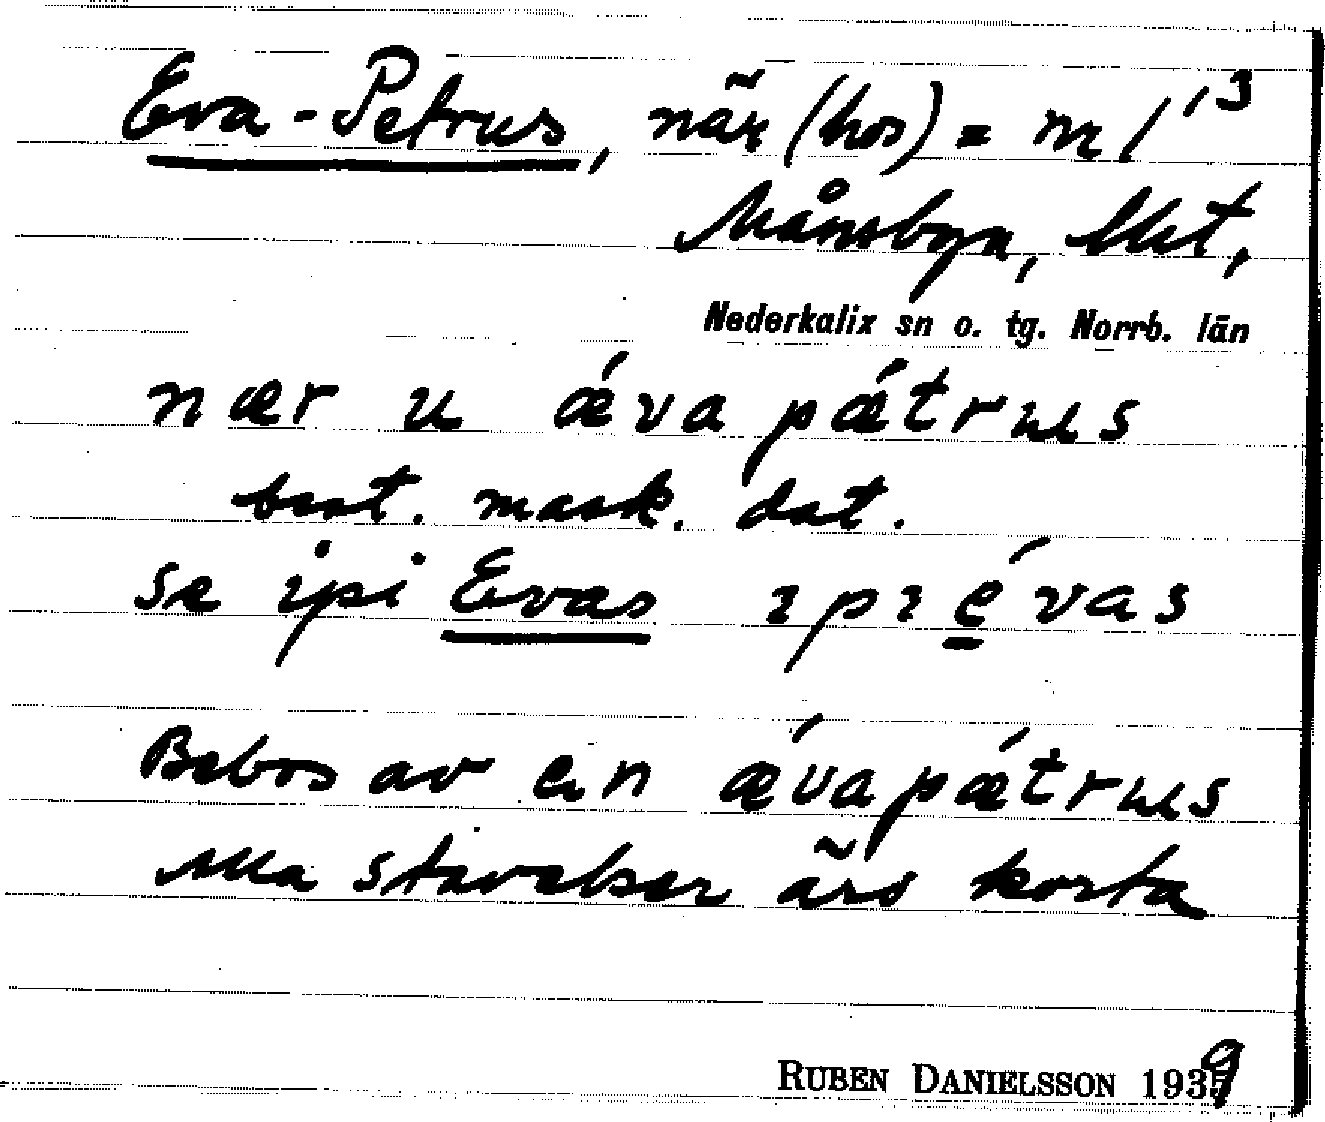 Eva-Petrus, när (hos) = m/13
Månsbyn, Ukt,
Nederkalix sn o. tg. Norrb. län
nær u ǽva pǽtrɯs
best. mask. dat.
se ipi Evas ɪpɪ évas
Bebos av en ǽvapǽtrɯs
Alla stavelser äro korta
RUBEN DANIELSSON 1939